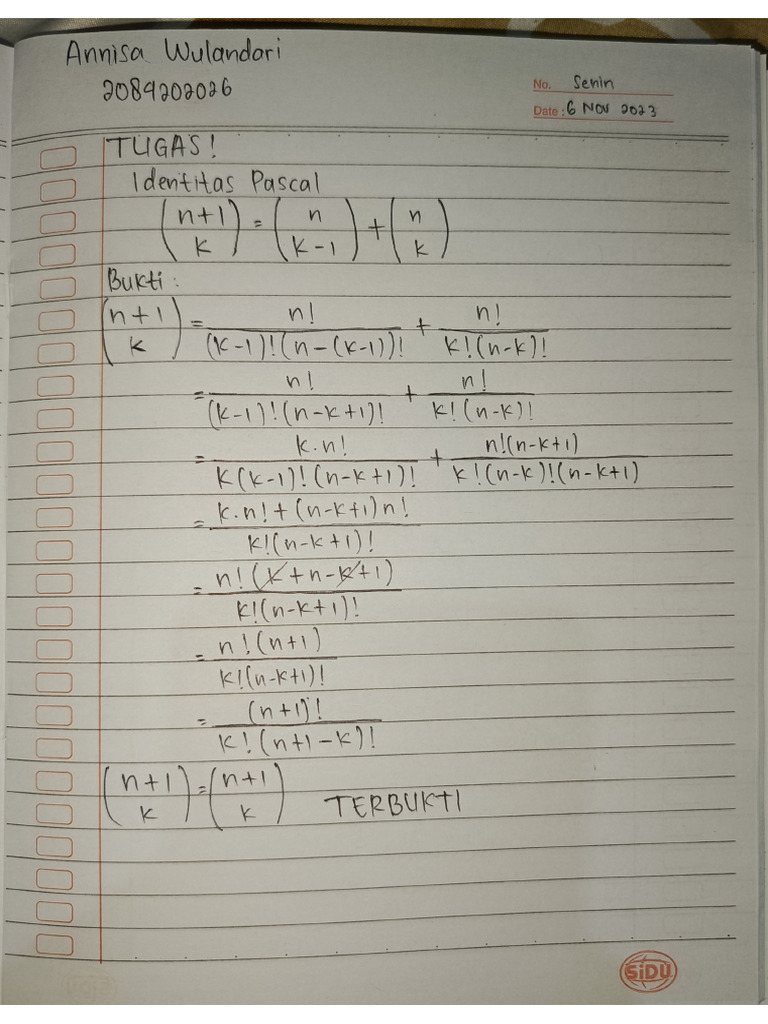 Annisa Wulandari
2084202026
No. Senin
Date : 6 NOV 2023
TUGAS!
Identitas Pascal
(n+1 k) = (n k-1) + (n k)
Bukti :
(n+1 k) = n!/((k-1)!(n-(k-1))!) + n!/(k!(n-k)!)
= n!/((k-1)!(n-k+1)!) + n!/(k!(n-k)!)
= k.n!/(k(k-1)!(n-k+1)!) + n!(n-k+1)/(k!(n-k)!(n-k+1)
= k.n!+(n-k+1)n!/(k!(n-k+1)!)
= n!(k+n-k+1)/(k!(n-k+1)!)
= n!(n+1)/(k!(n-k+1)!)
= (n+1)!/(k!(n+1-k)!)
(n+1 k) = (n+1 k) TERBUKTI
SiDU